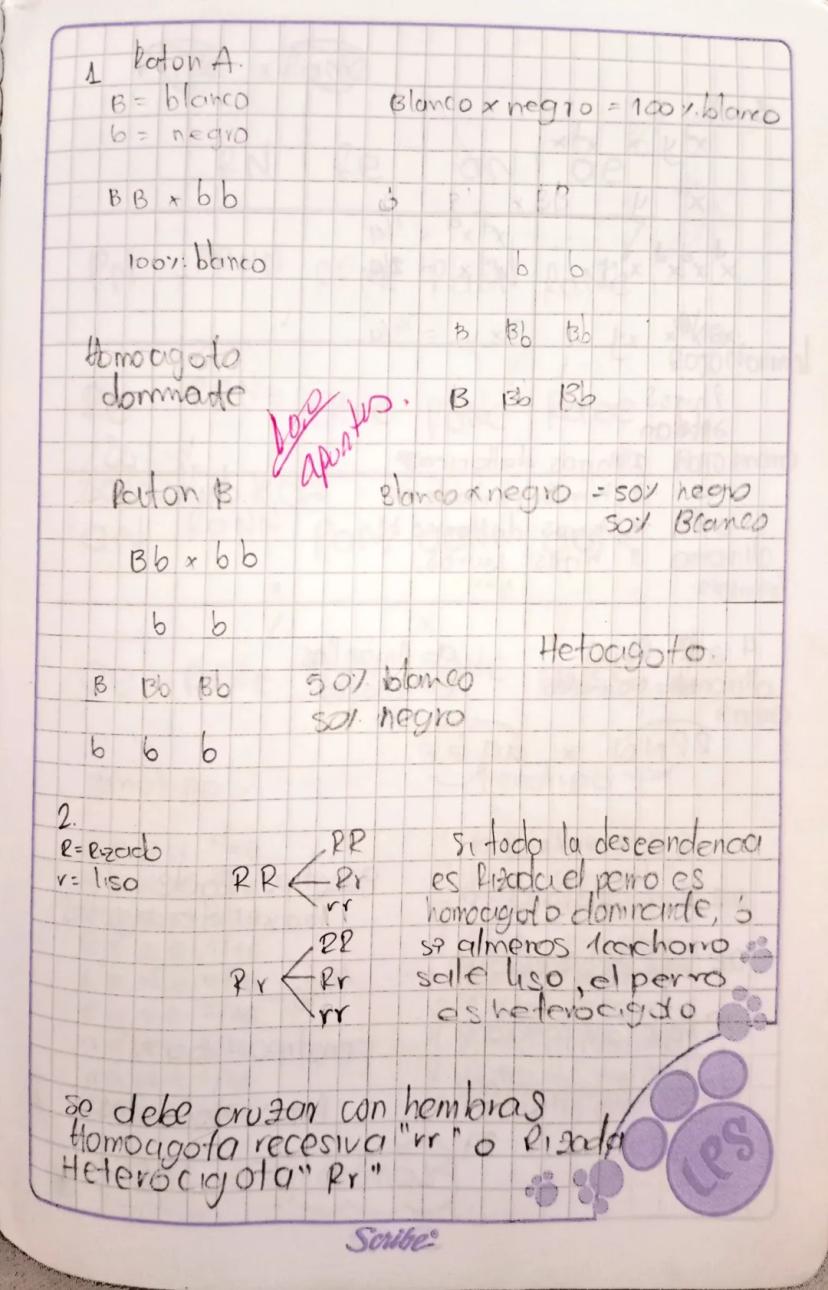 1 Raton A.
B = blanco
b = negro
Blanco x negro = 100% blanco
BB x bb
100% blanco
b b
B Bb Bb
B Bb Bb
Homocigoto
dominate
10.0
apuntes.
Raton B
Blanco x negro = 50% negro
50% Blanco
Bb x bb
b b
B Bb Bb
b b b
50% blanco
50% negro
Hetocigoto.
2.
R = Rizado
r = liso
RR
RR
Rr
rr
Rr
RR
Rr
rr
Si todo la descendencia
es Rizada el perro es
homocigoto dominante, ó
si almenos 1 cachorro
sale liso, el perro
es heterocigoto
se debe cruzar con hembras
Homocigota recesiva "rr" o Rizada
Heterocigota "Rr"
LPS
Scribe